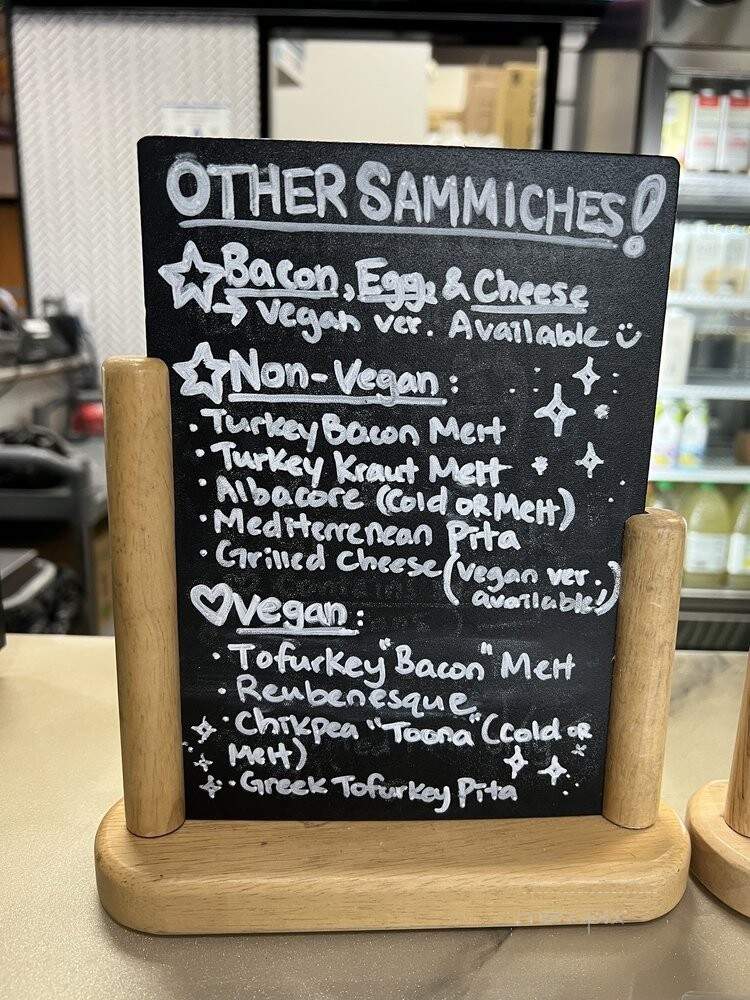 OTHER SAMMICHES!
Bacon, Egg, & Cheese
→ Vegan ver. Available
Non-Vegan:
• Turkey Bacon Melt
• Turkey Kraut Melt
• Albacore (Cold OR Melt)
• Mediterrenean Pita
• Grilled Cheese (Vegan ver.
available!)
Vegan:
• Tofurkey "Bacon" Melt
• Reubenesque
• Chikpea "Toona" (Cold OR
Melt)
• Greek Tofurkey Pita